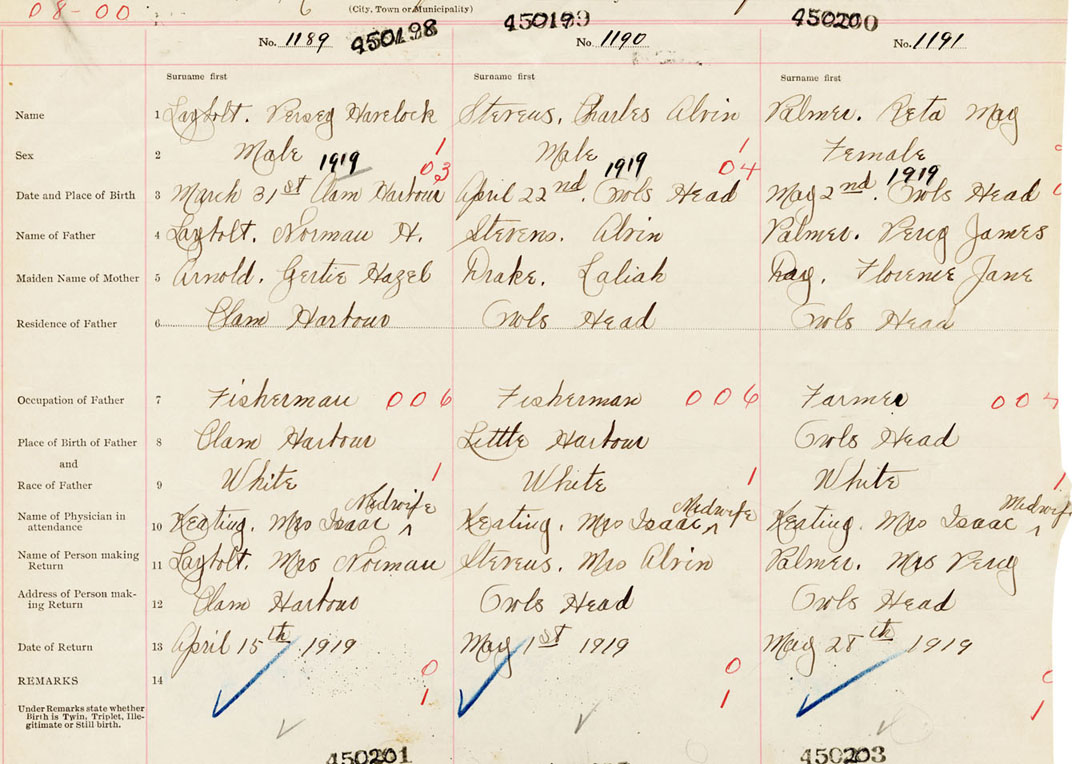 08-00
(City, Town or Municipality)
450198 450199 450200
No. 1189 No. 1190 No. 1191
Surname first Surname first Surname first
Name 1 Laybolt. Persey Havelock Stevens, Charles Alvin Palmer. Reta May
Sex 2 Male 1 Male 1 Female
1919 03 1919 04 1919
Date and Place of Birth 3 March 31st Clam Harbour April 22nd. Owls Head May 2nd. Owls Head
Name of Father 4 Laybolt. Norman H. Stevens. Alvin Palmer. Percy James
Maiden Name of Mother 5 Arnold. Gertie Hazel Drake. Laliah Day. Florence Jane
Residence of Father 6 Clam Harbour Owls Head Owls Head
Occupation of Father 7 Fisherman 006 Fisherman 006 Farmer 00
Place of Birth of Father 8 Clam Harbour Little Harbour Owls Head
and
Race of Father 9 White 1 White 1 White 1
Midwife Midwife Midwife
Name of Physician in attendance 10 Keating. Mrs Isaac Keating. Mrs Isaac Keating. Mrs Isaac
Name of Person making Return 11 Laybolt. Mrs Norman Stevens. Mrs Alvin Palmer. Mrs Percy
Address of Person making Return 12 Clam Harbour Owls Head Owls Head
Date of Return 13 April 15th 1919 May 1st 1919 May 28th 1919
REMARKS 14 0 0
1 1 1
Under Remarks state whether
Birth is Twin, Triplet, Ille-
gitimate or Still birth.
450201 450203